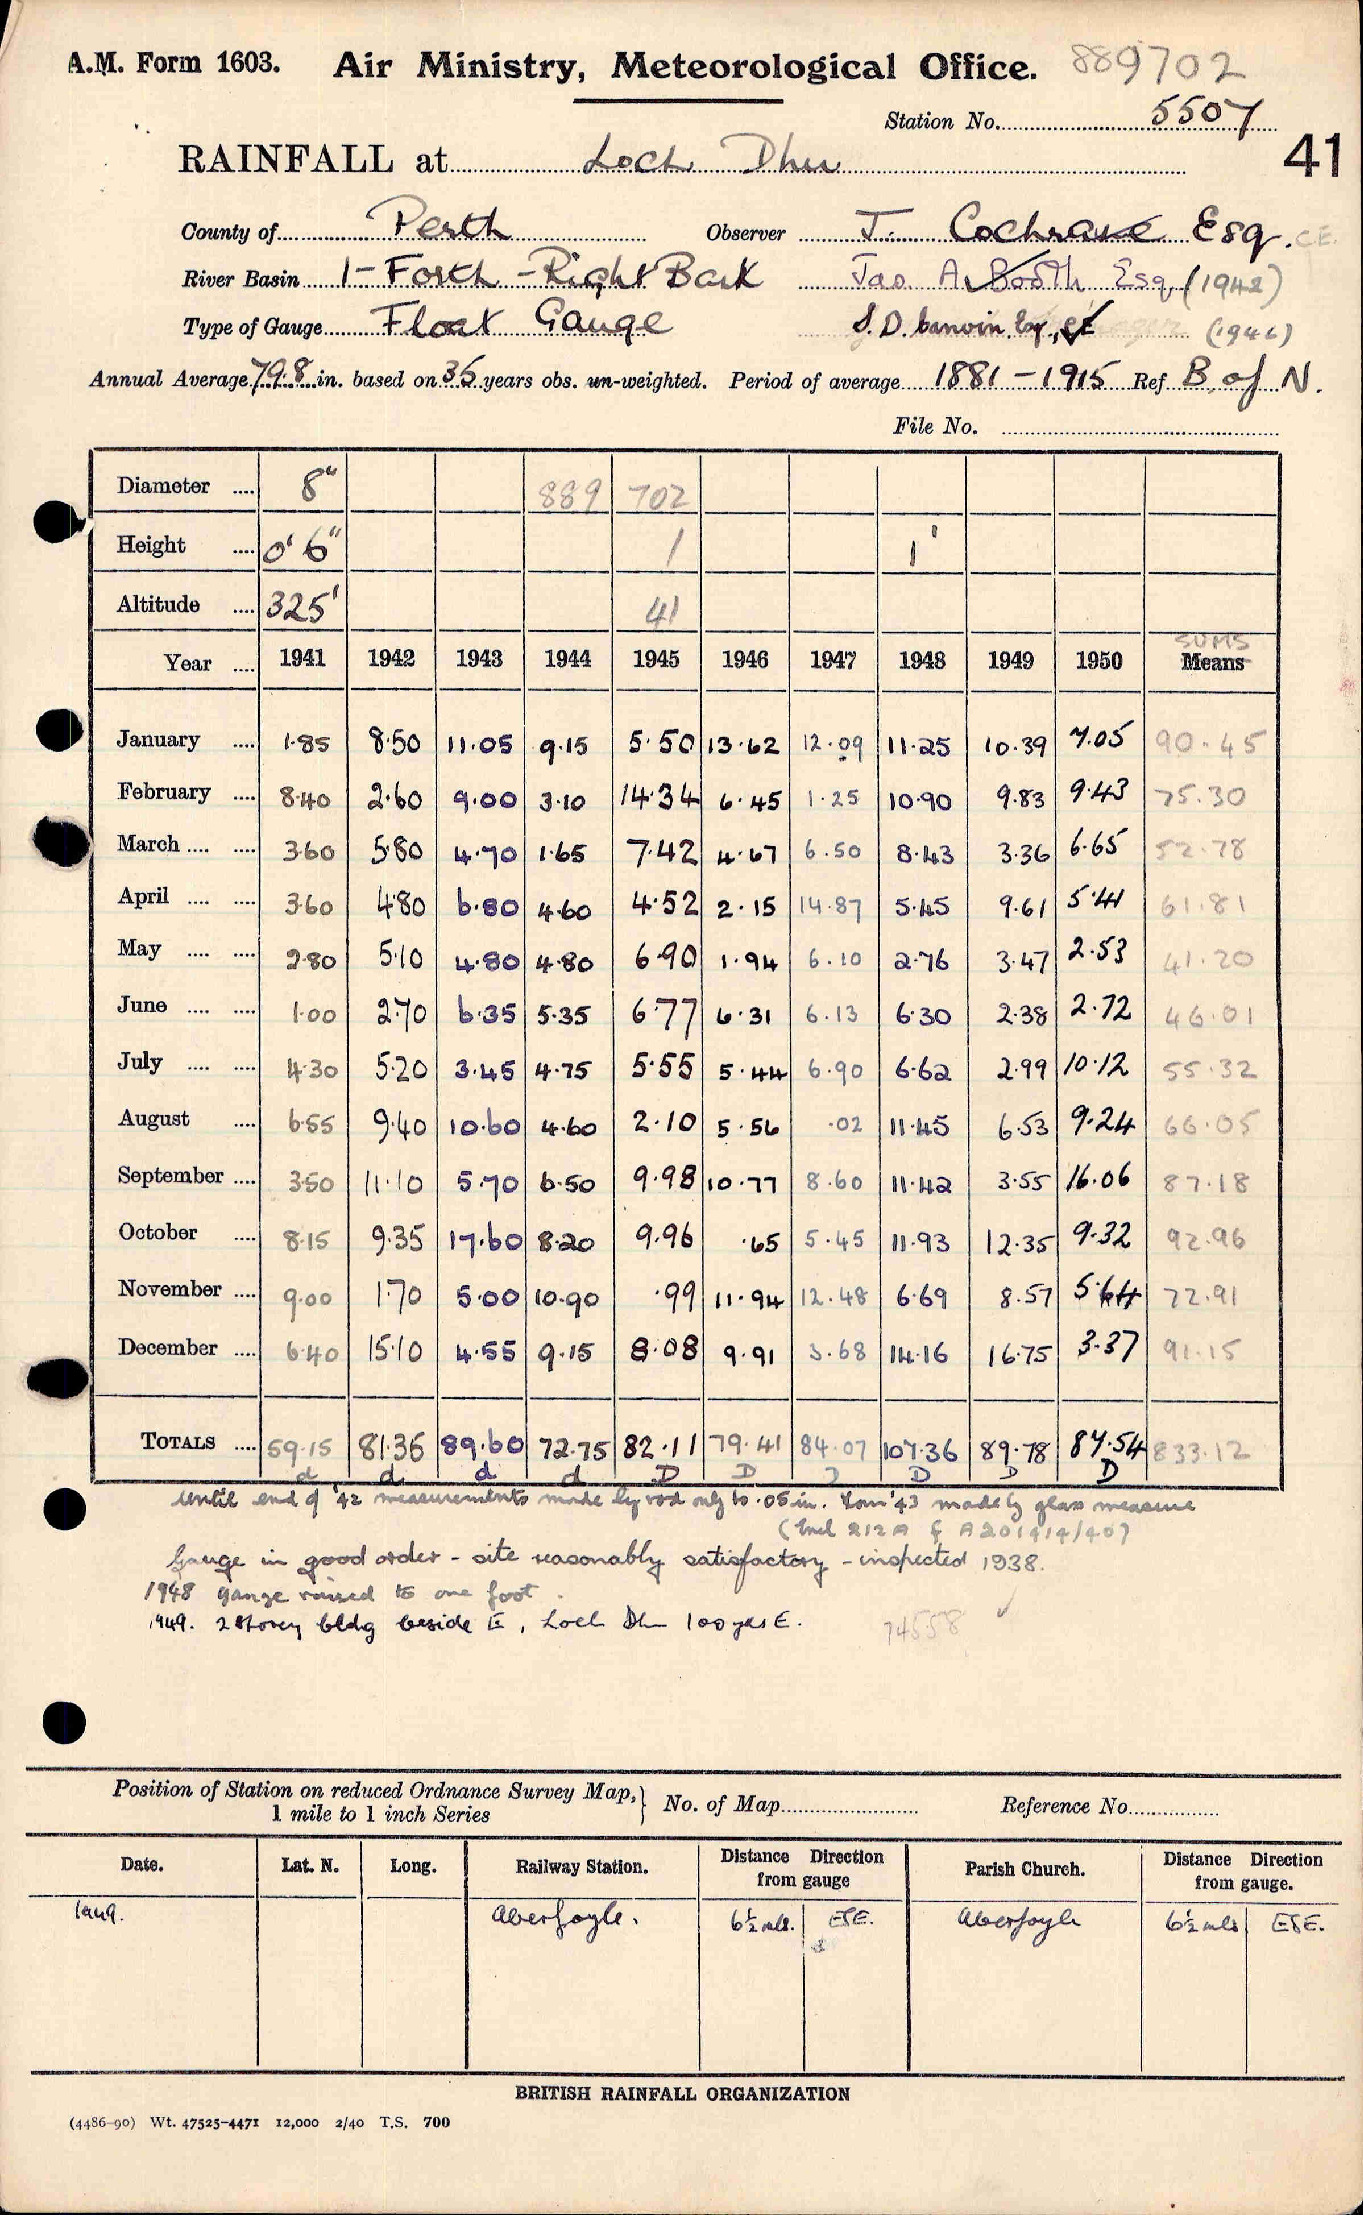 A.M. Form 1603. Air Ministry, Meteorological Office. 889702
Station No. 5507
41
RAINFALL at Loch Dhu
County of Perth Observer J. Cochrane Esq. C.E.
River Basin 1-Forth-Right Bank Jas. A. Booth Esq (1942)
Type of Gauge Float Gauge (1946)
Annual Average 79.8 in. based on 35 years obs. un-weighted. Period of average 1881-1915 Ref B of N.
File No.
Diameter 8" 889 702
Height 0'6" 1 1'
Altitude 325' 41
SUMS
Year 1941 1942 1943 1944 1945 1946 1947 1948 1949 1950 Means
January 1.85 8.50 11.05 9.15 5.50 13.62 12.09 11.25 10.39 7.05 90.45
February 8.40 2.60 9.00 3.10 14.34 6.45 1.25 10.90 9.83 9.43 75.30
March 3.60 5.80 4.70 1.65 7.42 4.67 6.50 8.43 3.36 6.65 52.78
April 3.60 4.80 6.80 4.60 4.52 2.15 14.87 5.45 9.61 5.41 61.81
May 2.80 5.10 4.80 4.80 6.90 1.94 6.10 2.76 3.47 2.53 41.20
June 1.00 2.70 6.35 5.35 6.77 6.31 6.13 6.30 2.38 2.72 46.01
July 4.30 5.20 3.45 4.75 5.55 5.44 6.90 6.62 2.99 10.12 55.32
August 6.55 9.40 10.60 4.60 2.10 5.56 .02 11.45 6.53 9.24 66.05
September 3.50 11.10 5.70 6.50 9.98 10.77 8.60 11.42 3.55 16.06 87.18
October 8.15 9.35 17.60 8.20 9.96 .65 5.45 11.93 12.35 9.32 92.96
November 9.00 1.70 5.00 10.90 .99 11.94 12.48 6.69 8.57 5.64 72.91
December 6.40 15.10 4.55 9.15 8.08 9.91 3.68 14.16 16.75 3.37 91.15
TOTALS 59.15 81.36 89.60 72.75 82.11 79.41 84.07 107.36 89.78 87.54 833.12
d d d d D D D D D D
Until end of '42 measurements made by rod only to .05 in. From '43 made by glass measure
(Encl 212A of A201414/40)
Gauge in good order - site reasonably satisfactory - inspected 1938.
1948 gauge raised to one foot.
1949. 2 storey bldg beside E, Loch Dhu 100 yds E.
74558
Position of Station on reduced Ordnance Survey Map, 1 mile to 1 inch Series } No. of Map Reference No.
Date. Lat. N. Long. Railway Station. Distance Direction from gauge Parish Church. Distance Direction from gauge.
1949. Aberfoyle. 6½ mls. ESE. Aberfoyle 6½ mls ESE.
BRITISH RAINFALL ORGANIZATION
(4486-90) Wt. 47525-4471 12,000 2/40 T.S. 700